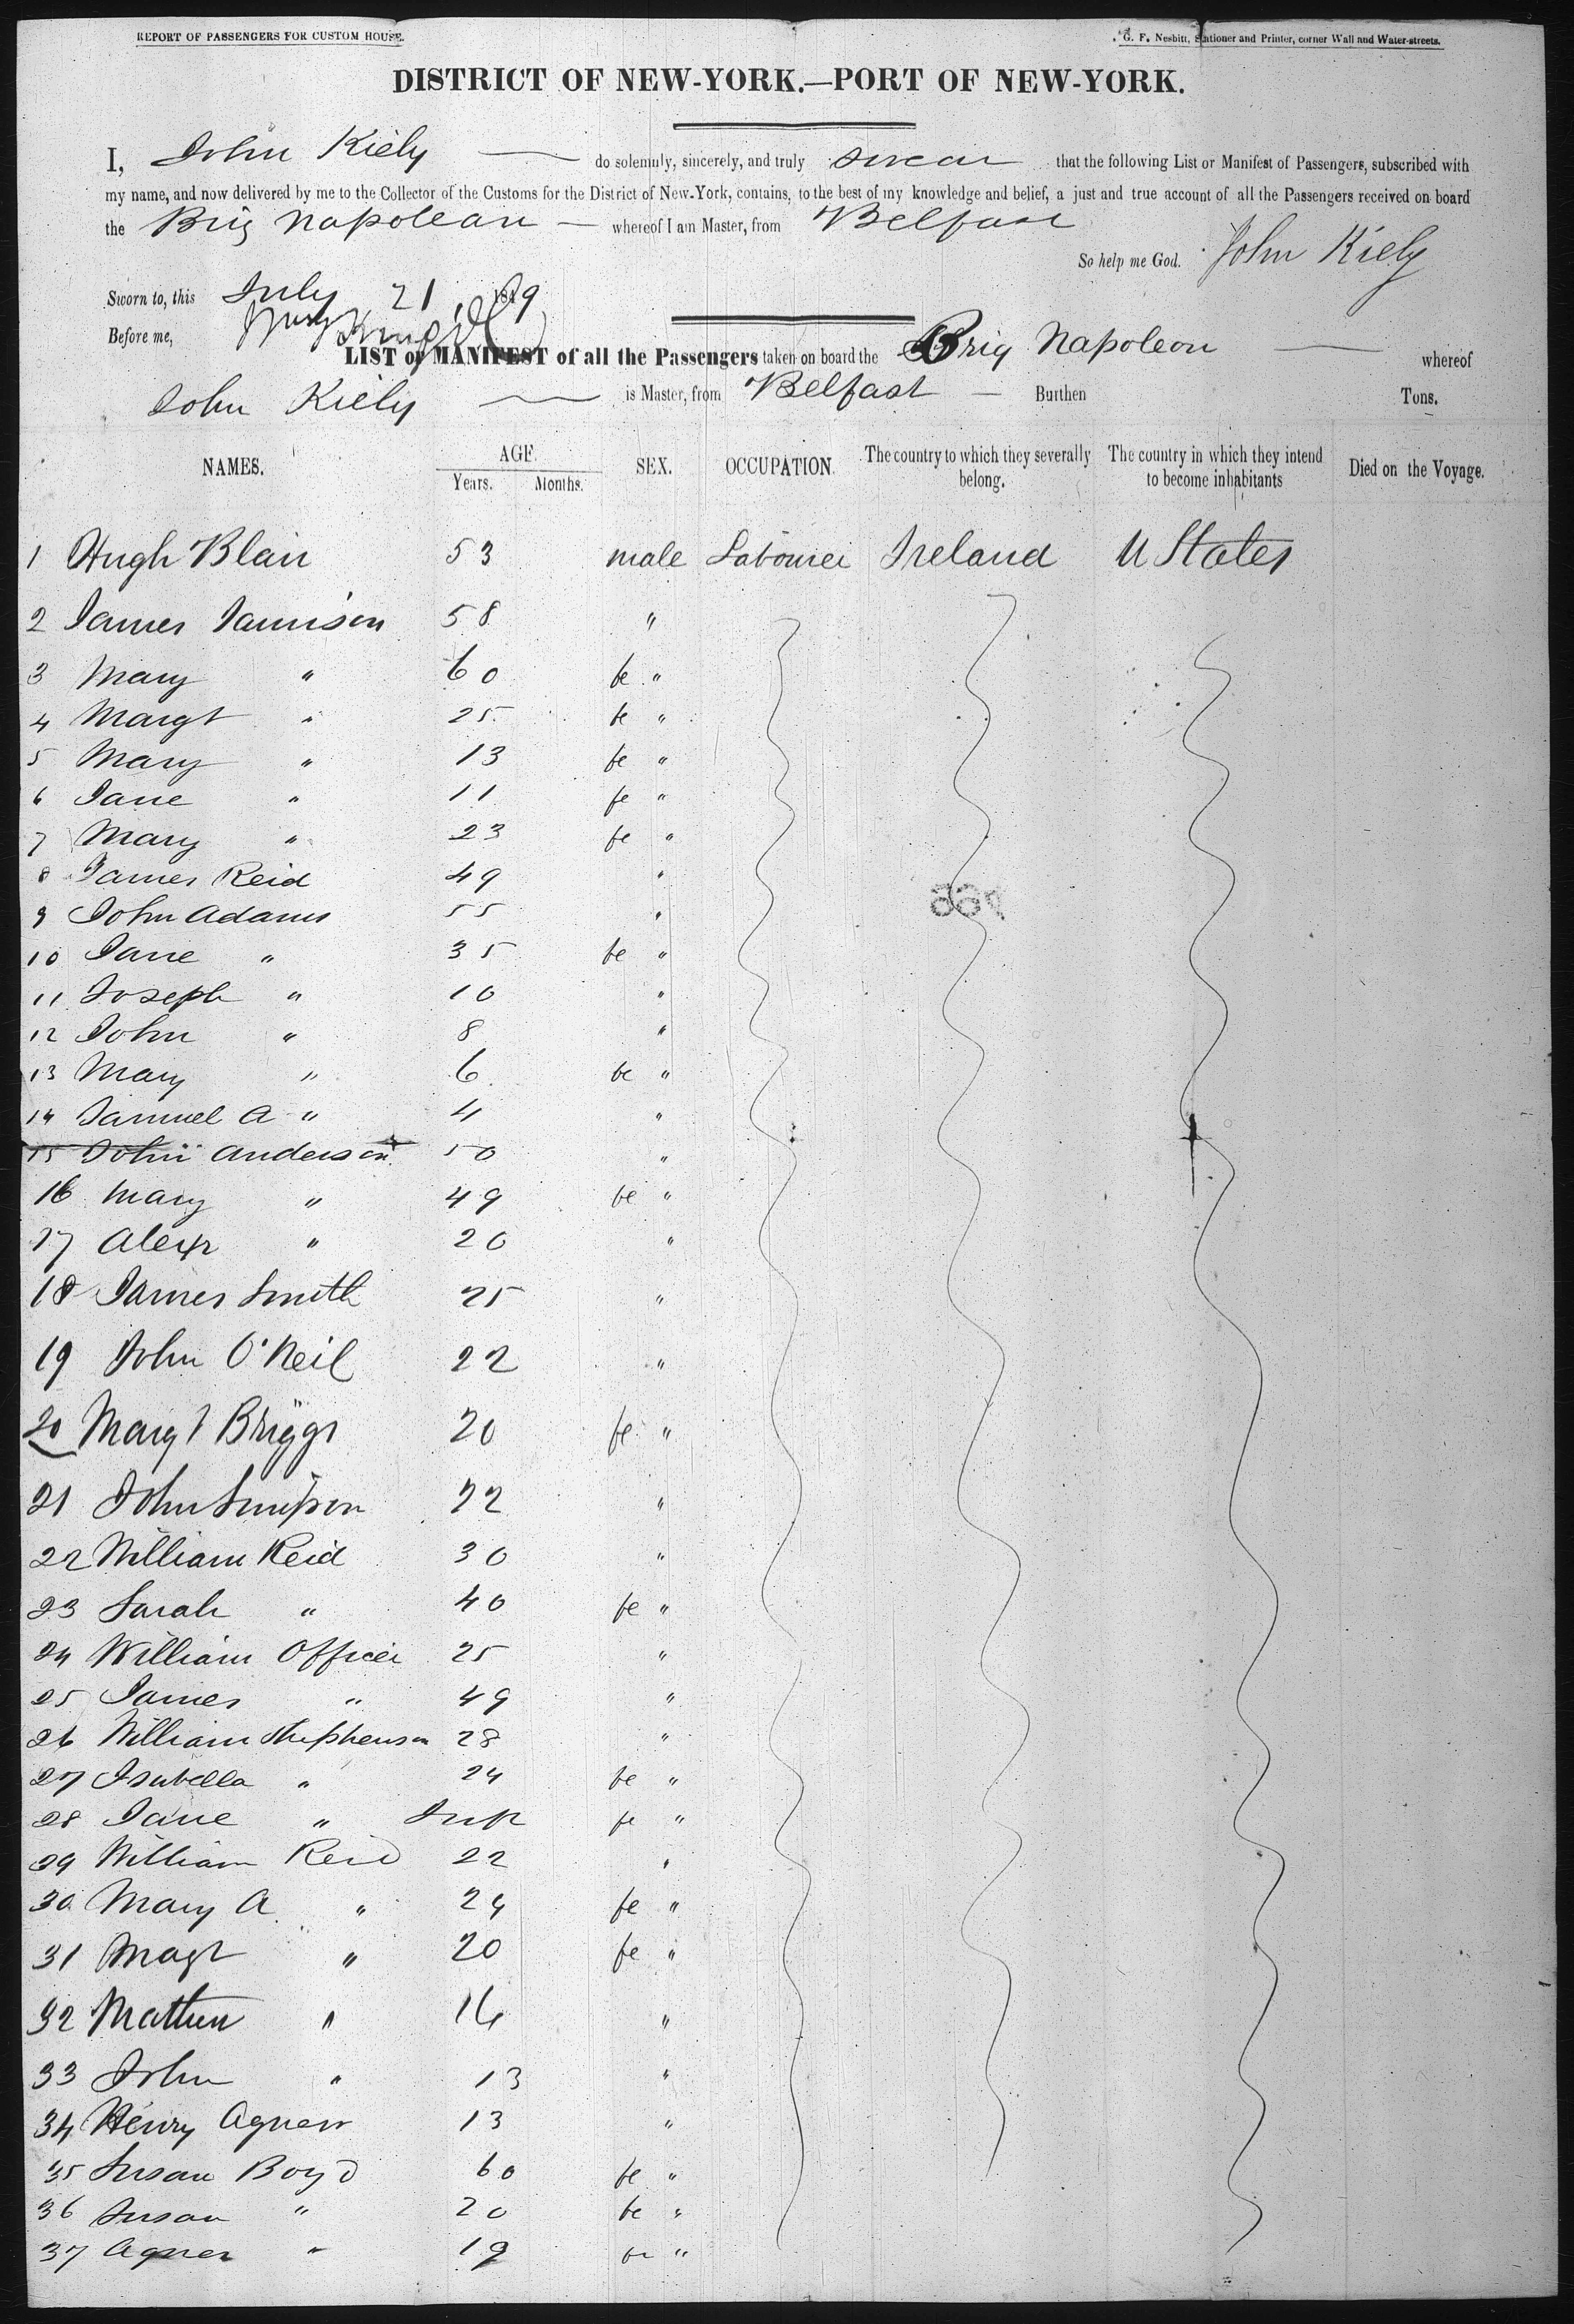 REPORT OF PASSENGERS FOR CUSTOM HOUSE.
G. F. Nesbitt, Stationer and Printer, corner Wall and Water-streets.
DISTRICT OF NEW-YORK.—PORT OF NEW-YORK.
I, John Kiely do solemnly, sincerely, and truly swear that the following List or Manifest of Passengers, subscribed with
my name, and now delivered by me to the Collector of the Customs for the District of New-York, contains, to the best of my knowledge and belief, a just and true account of all the Passengers received on board
the Brig Napolean — whereof I am Master, from Belfast
So help me God. John Kiely
Sworn to, this July 21 1849
Before me,
LIST or MANIFEST of all the Passengers taken on board the Brig Napoleon — whereof
John Kiely — is Master, from Belfast — Burthen Tons.
NAMES. AGE. Years. Months. SEX. OCCUPATION. The country to which they severally belong. The country in which they intend to become inhabitants Died on the Voyage.
1 Hugh Blair 53 male Labourer Ireland U States
2 James Jamison 58 "
3 Mary " 60 fe "
4 Margt " 25 fe "
5 Mary " 13 fe "
6 Jane " 11 fe "
7 Mary " 23 fe "
8 James Reid 49 "
9 John Adams 55 "
10 Jane " 35 fe "
11 Joseph " 10 "
12 John " 8 "
13 Mary " 6 fe "
14 Samuel A " 4 "
15 John Anderson 50 "
16 Mary " 49 fe "
17 Alexr " 20 "
18 James Smith 25 "
19 John O'Neil 22 "
20 Margt Briggs 20 fe "
21 John Simpson 22 "
22 William Reid 30 "
23 Sarah " 40 fe "
24 William Officer 25 "
25 James " 49 "
26 William Stephenson 28 "
27 Isabella " 24 fe "
28 Jane " Inf fe "
29 William Reid 22 "
30 Mary A " 24 fe "
31 Magt " 20 fe "
32 Mathew " 16 "
33 John " 13 "
34 Henry Agnew 13 "
35 Susan Boyd 60 fe "
36 Susan " 20 fe "
37 Agnes " 19 fe "